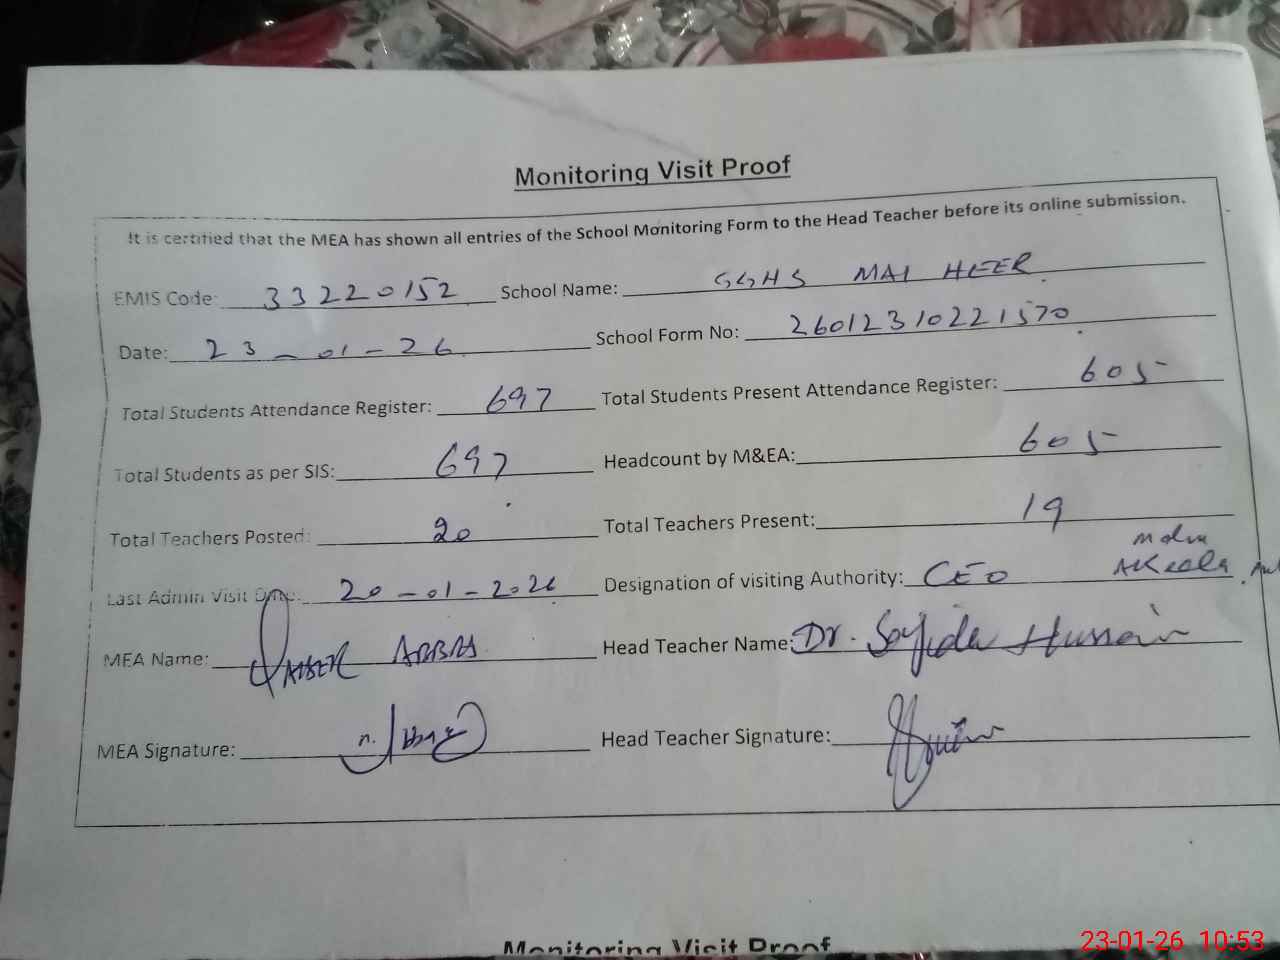 Monitoring Visit Proof
It is certified that the MEA has shown all entries of the School Monitoring Form to the Head Teacher before its online submission.
EMIS Code: 33220152 School Name: GGHS MAI HEER
Date: 23-01-26 School Form No: 26012310221570
Total Students Attendance Register: 697 Total Students Present Attendance Register: 605
Total Students as per SIS: 697 Headcount by M&EA: 605
Total Teachers Posted: 20 Total Teachers Present: 19
Last Admin Visit Date: 20-01-2026 Designation of visiting Authority: CEO
MEA Name: QAMBER ABBAS Head Teacher Name: Dr. Sayida Hussain
MEA Signature: Head Teacher Signature:
Monitoring Visit Proof
23-01-26 10:53